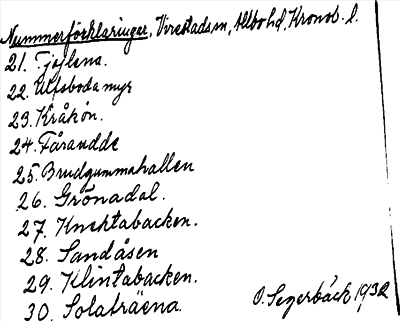 Nummerförklaringar, Virestads sn, Allbo hd, Kronob. l.
21. Tjejlena.
22. Ulfsboda myr
23. Kråkön.
24. Fåraudde
25. Brudgummahallen
26. Grönadal.
27. Knektabacken.
28. Sandåsen
29. Klintabacken.
30. Solaträena
O. Segerbäck 1932